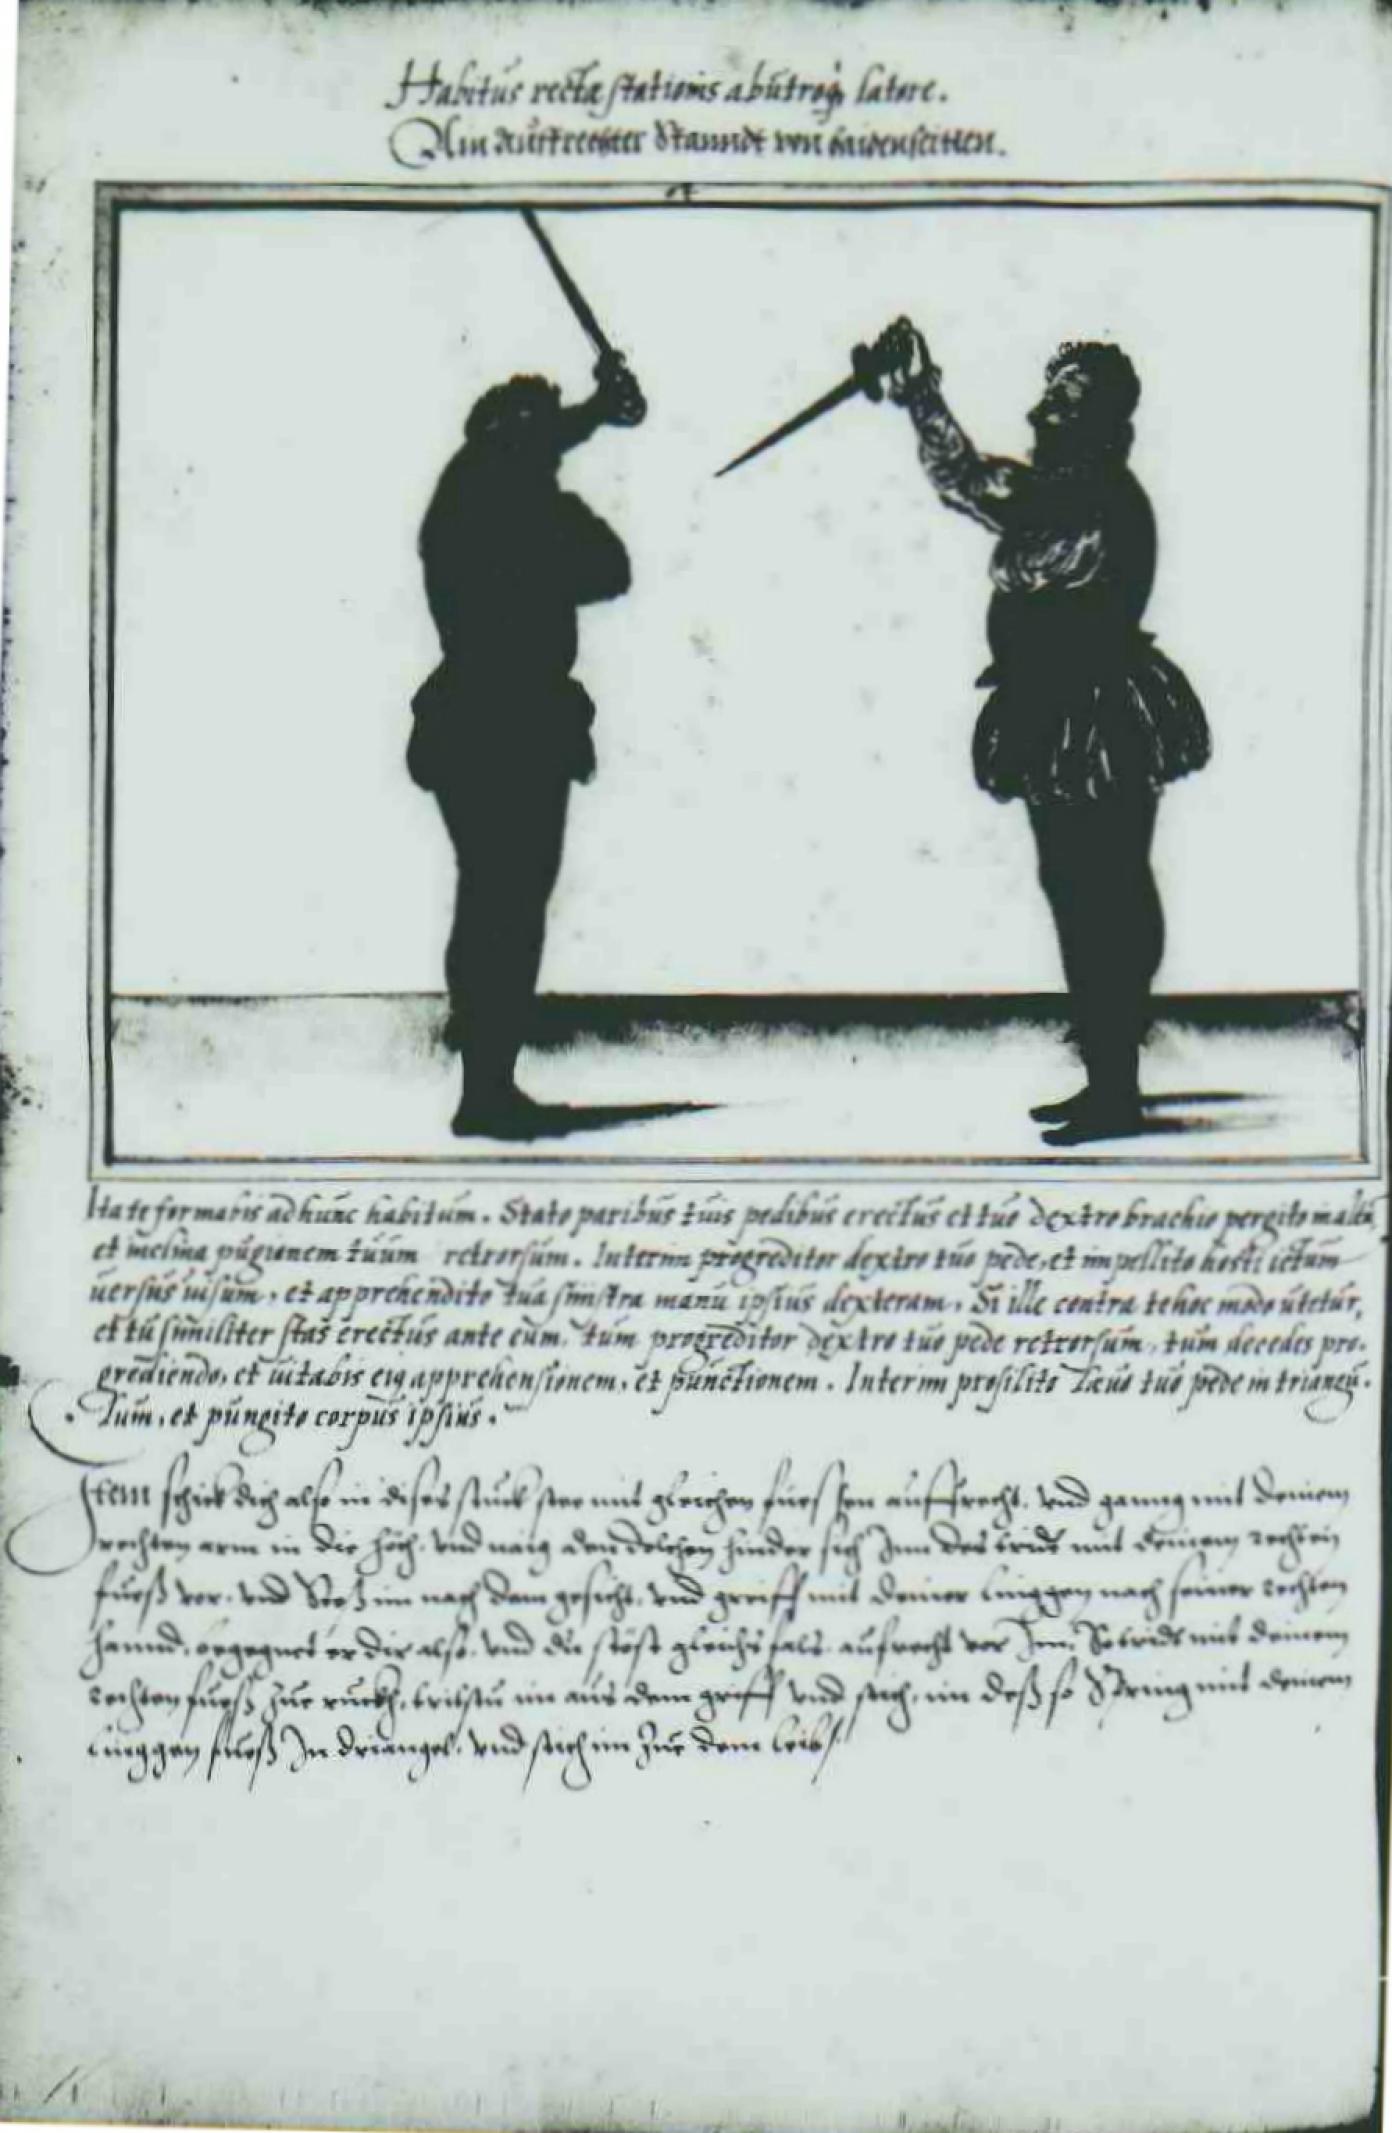 Habitus rectæ stationis ab utroq; latere.
Ain auffrechter Stanndt von baiden seitten.
Ita te formabis ad hunc habitum. Stato paribus tuis pedibus erectus et tuo dextro brachio pergito in altū,
et inclina pugionem tuum retrorsum. Interim progreditor dextro tuo pede, et impellito hosti ictum
uersus uisum, et apprehendito tua sinistra manu ipsius dexteram. Si ille contra te hoc modo utetur,
et tu similiter stas erectus ante eum, tum progreditor dextro tuo pede retrorsum, tum decedes pro-
grediendo, et uitabis eiq apprehensionem, et punctionem. Interim prosilito læuo tuo pede in triangu-
lum, et pungito corpus ipsius.
Item schick dich also in dises stuck stee mit gleichen fuessen auffrecht. vnd ganng mit deinem
rechten arm in die höch. vnd naig den dolchen hinder sich Inn des trit mit deinem rechten
fuess vor. vnd Stoß im nach dem gesicht. vnd greiff mit deiner linggen nach seiner rechten
hannd. begegnet er dir also. vnd du steest gleichsfals aufrecht vor Im. So trit mit deinem
rechten fuess zue ruckh, trittstu im aus dem griff vnd stich. in deß so Spring mit deinem
linggen fuess In driangel. vnd stich im zue dem leib.